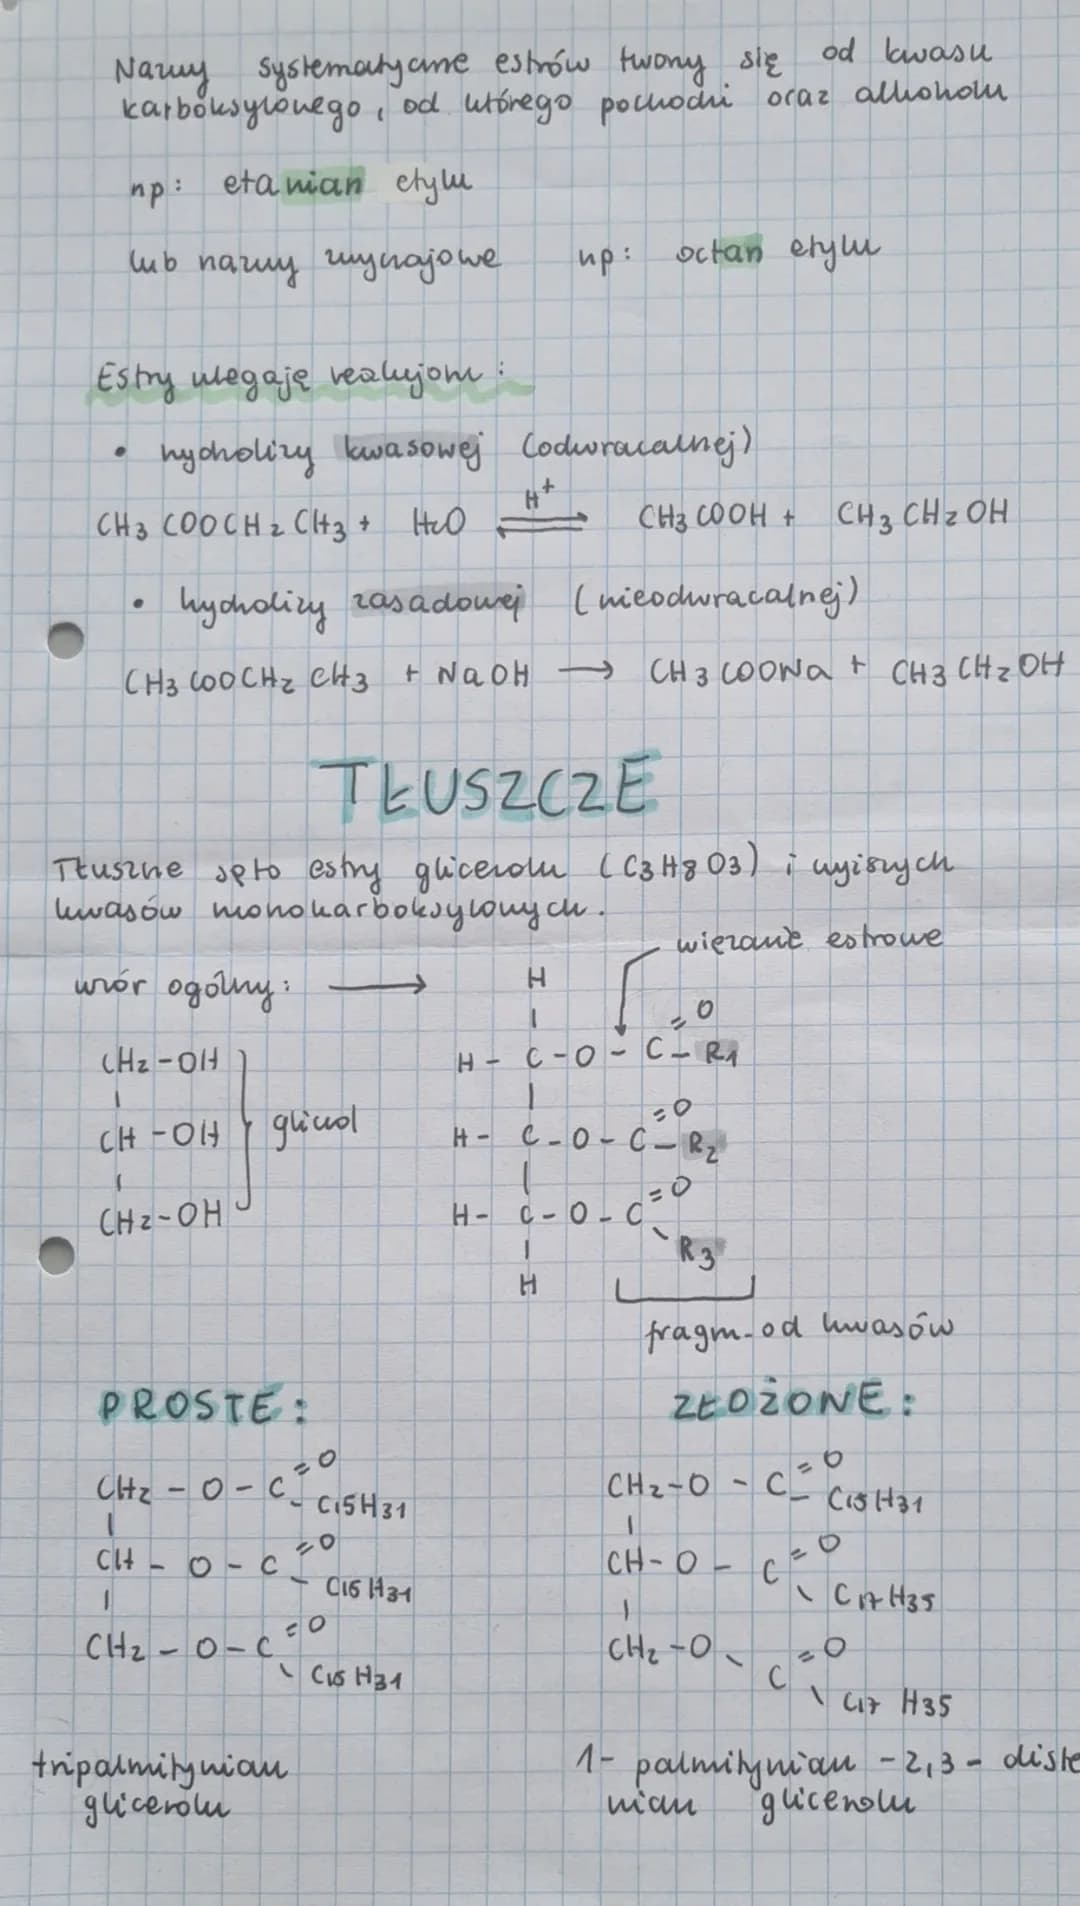 Nazwy systematyczne estrów tworzy się od kwasu
karboksylowego, od którego pochodzi oraz alkoholu
np: etanian etylu
lub nazwy zwyczajowe np: octan etylu
Estry ulegają reakcjom:
• hydrolizy kwasowej (odwracalnej)
CH3COOCH2CH3 + H2O ⇌ H+ CH3COOH + CH3CH2OH
• hydrolizy zasadowej (nieodwracalnej)
CH3COOCH2CH3 + NaOH → CH3COONa + CH3CH2OH
TŁUSZCZE
Tłuszcze są to estry glicerolu (C3H8O3) i wyższych
kwasów monokarboksylowych.
wiązanie estrowe
wzór ogólny: →
H
|
=O
CH2-OH H - C-O - C - R1
| |
=O
CH-OH glicerol H - C-O-C - R2
| |
=O
CH2-OH H - C-O-C
| \ R3
H
fragm. od kwasów
PROSTE: ZŁOŻONE:
=O =O
CH2 - O - C - C15H31 CH2-O - C - C15H31
| |
=O =O
CH - O - C - C15H31 CH-O - C \ C17H35
| |
=O =O
CH2 - O - C \ C15H31 CH2-O \ C \ C17H35
tripalmitynian 1-palmitynian -2,3- diste
glicerolu nian glicerolu